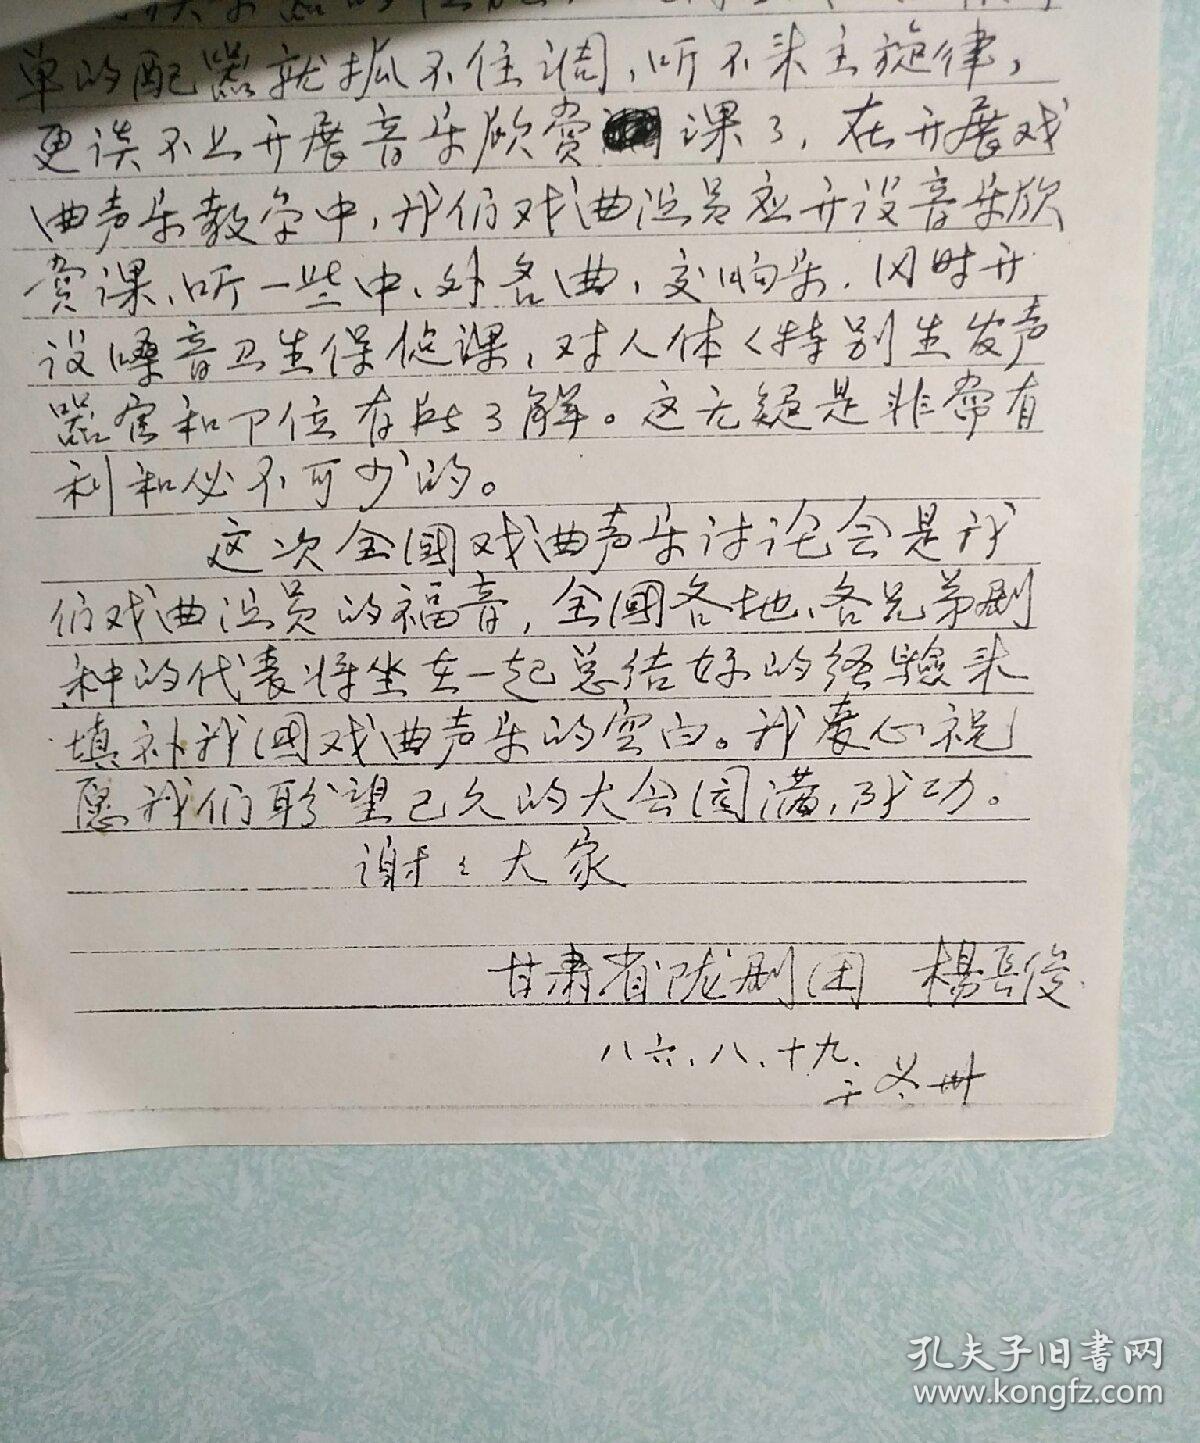 单的配器就抓不住调，听不来主旋律，
更谈不上开展音乐欣赏课了，在开展戏
曲声乐教学中，我们戏曲演员应开设音乐欣
赏课，听一些中、外名曲，交响乐．同时开
设嗓音卫生保健课，对人体〈特别是发声
器官和下位有所了解。这无疑是非常有
利和必不可少的。
这次全国戏曲声乐讨论会是我
们戏曲演员的福音，全国各地、各兄弟剧
种的代表将坐在一起总结好的经验来
填补我国戏曲声乐的空白。我衷心祝
愿我们盼望已久的大会圆满，成功。
谢々大家
甘肃省陇剧团 杨岳俊
八六．八．十九．
于兰州
孔夫子旧书网
www.kongfz.com